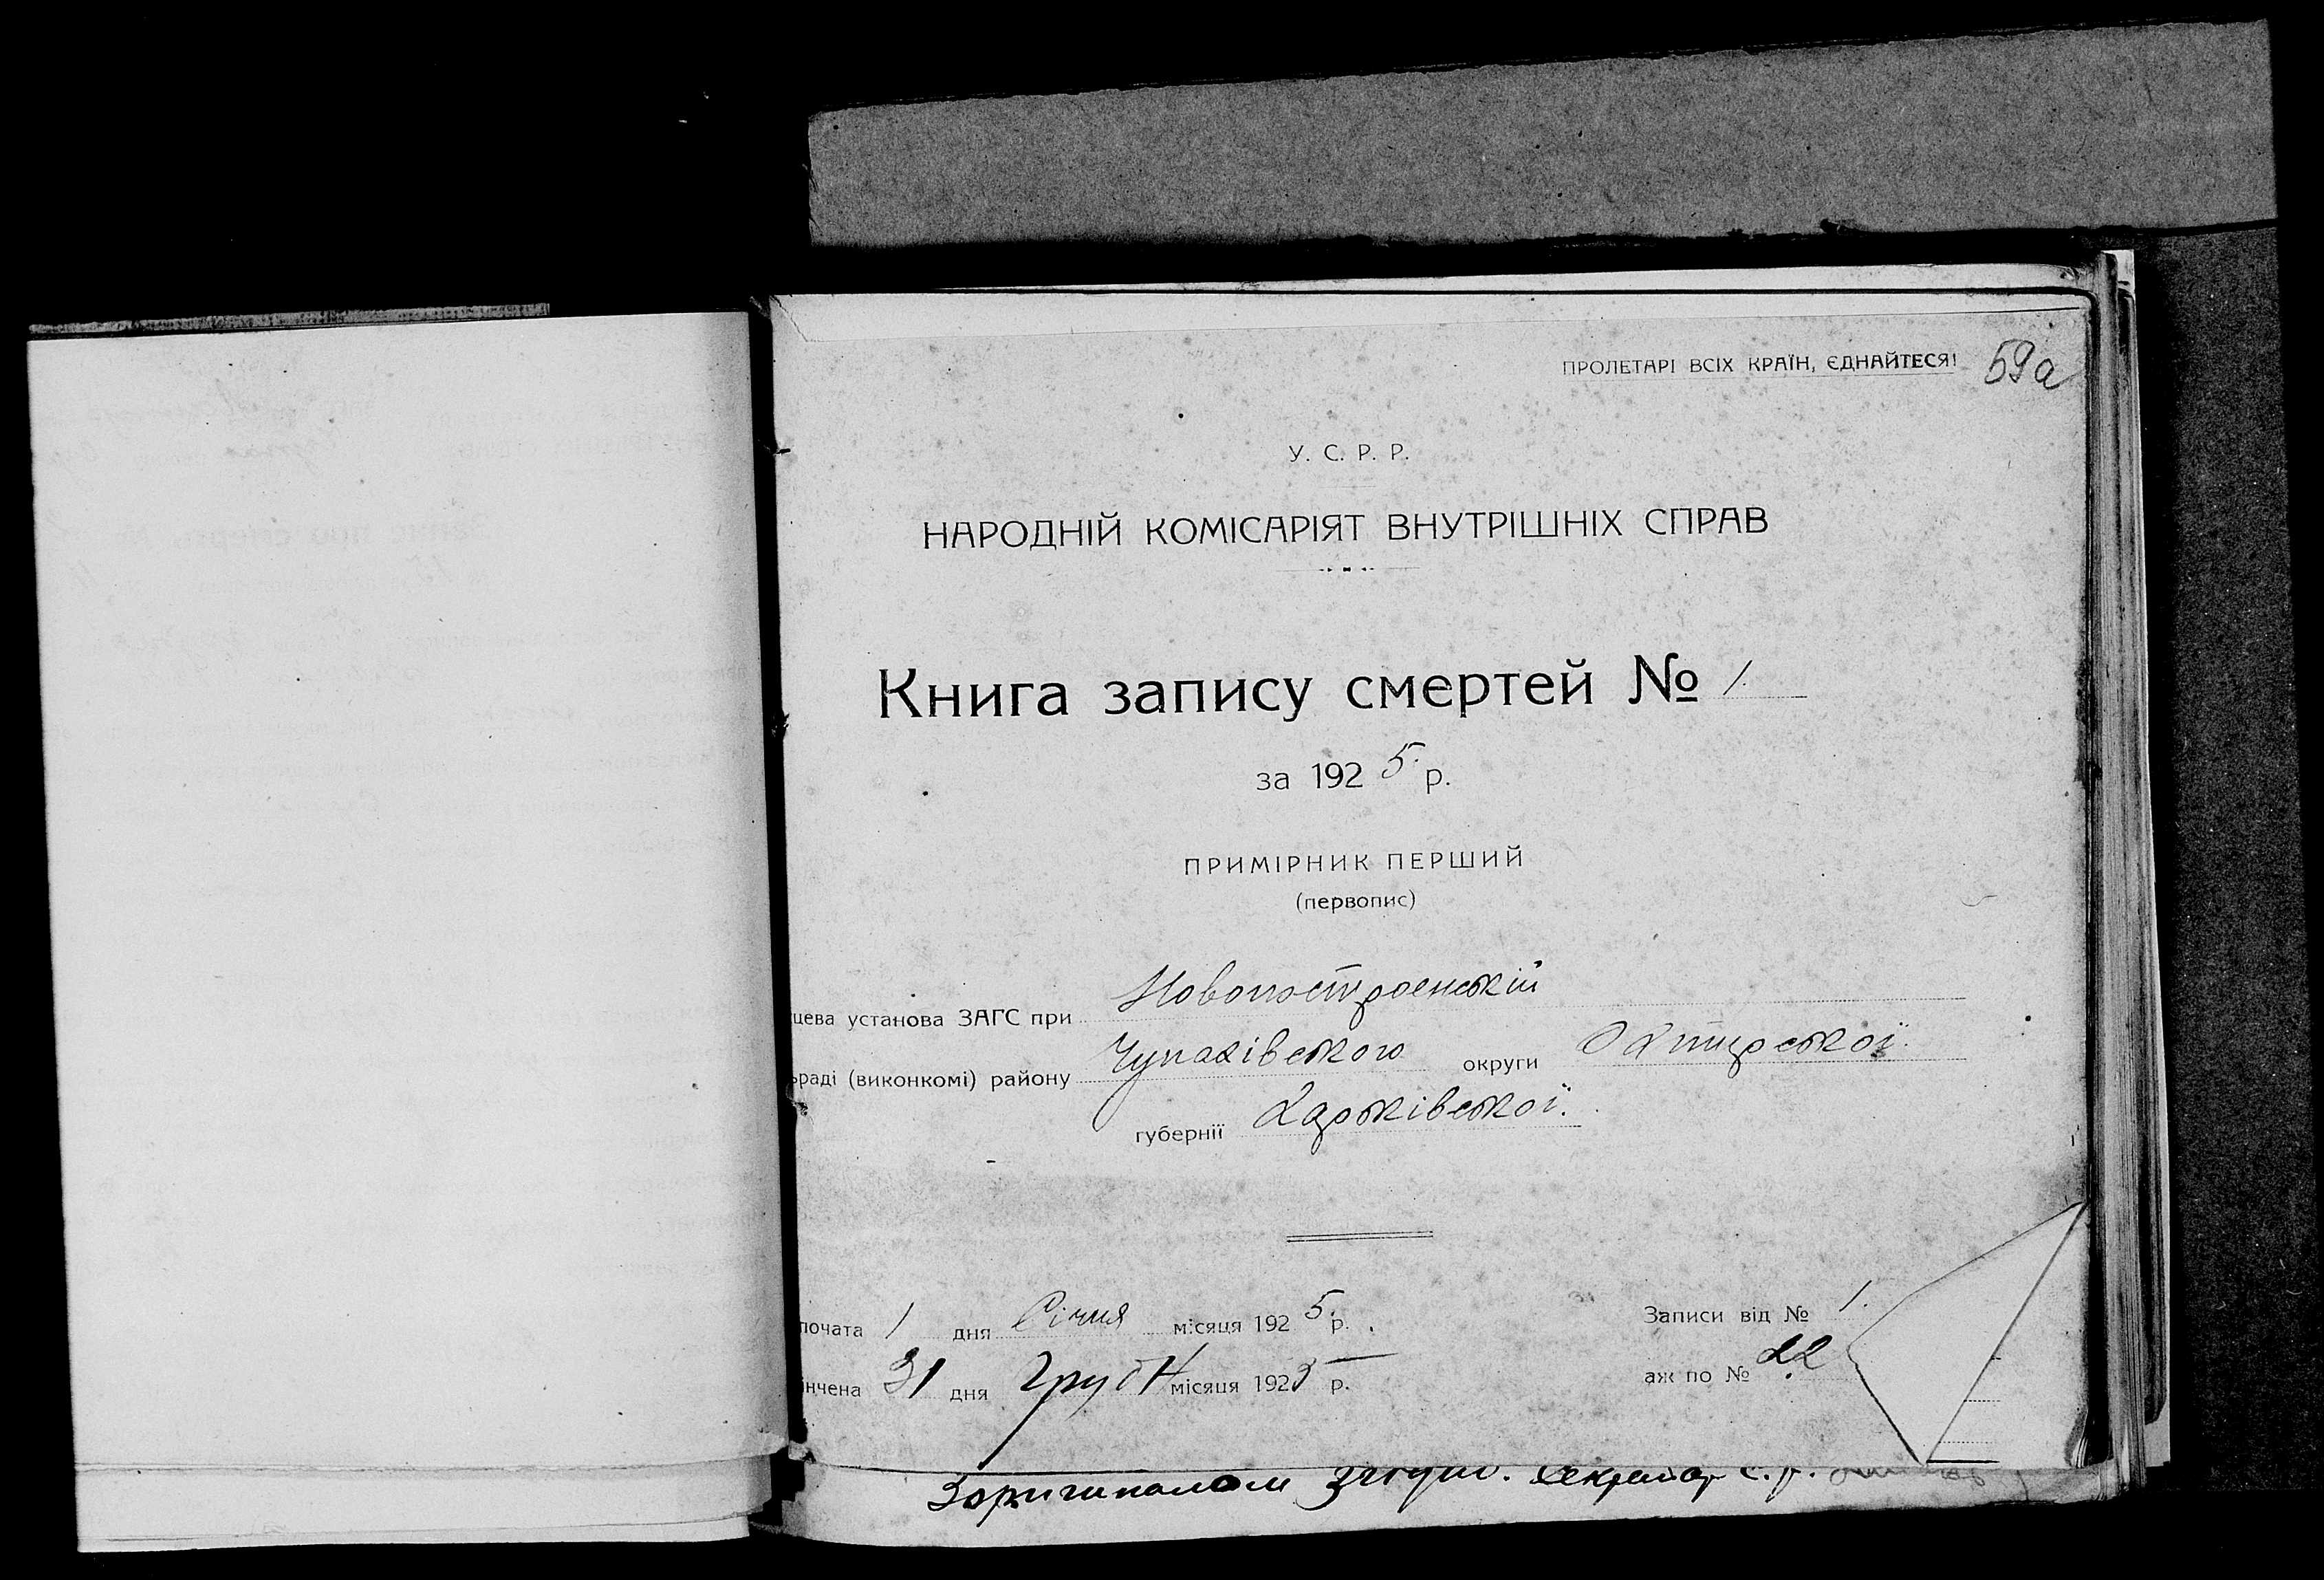 ПРОЛЕТАРІ ВСІХ КРАЇН, ЄДНАЙТЕСЯ! 59а
У. С. Р. Р.
НАРОДНІЙ КОМІСАРІЯТ ВНУТРІШНІХ СПРАВ
Книга запису смертей № 1.
за 1925 р.
ПРИМІРНИК ПЕРШИЙ
(первопис)
цева установа ЗАГС при Новопостроенській
раді (виконкомі) району Чупахівського округи Охтирської.
губернії Харьківської.
почата 1 дня Січня місяця 1925 р. Записи від № 1.
інчена 31 дня Грудн місяця 1925 р. аж по № 22
Зоригиналом секретар с. р.